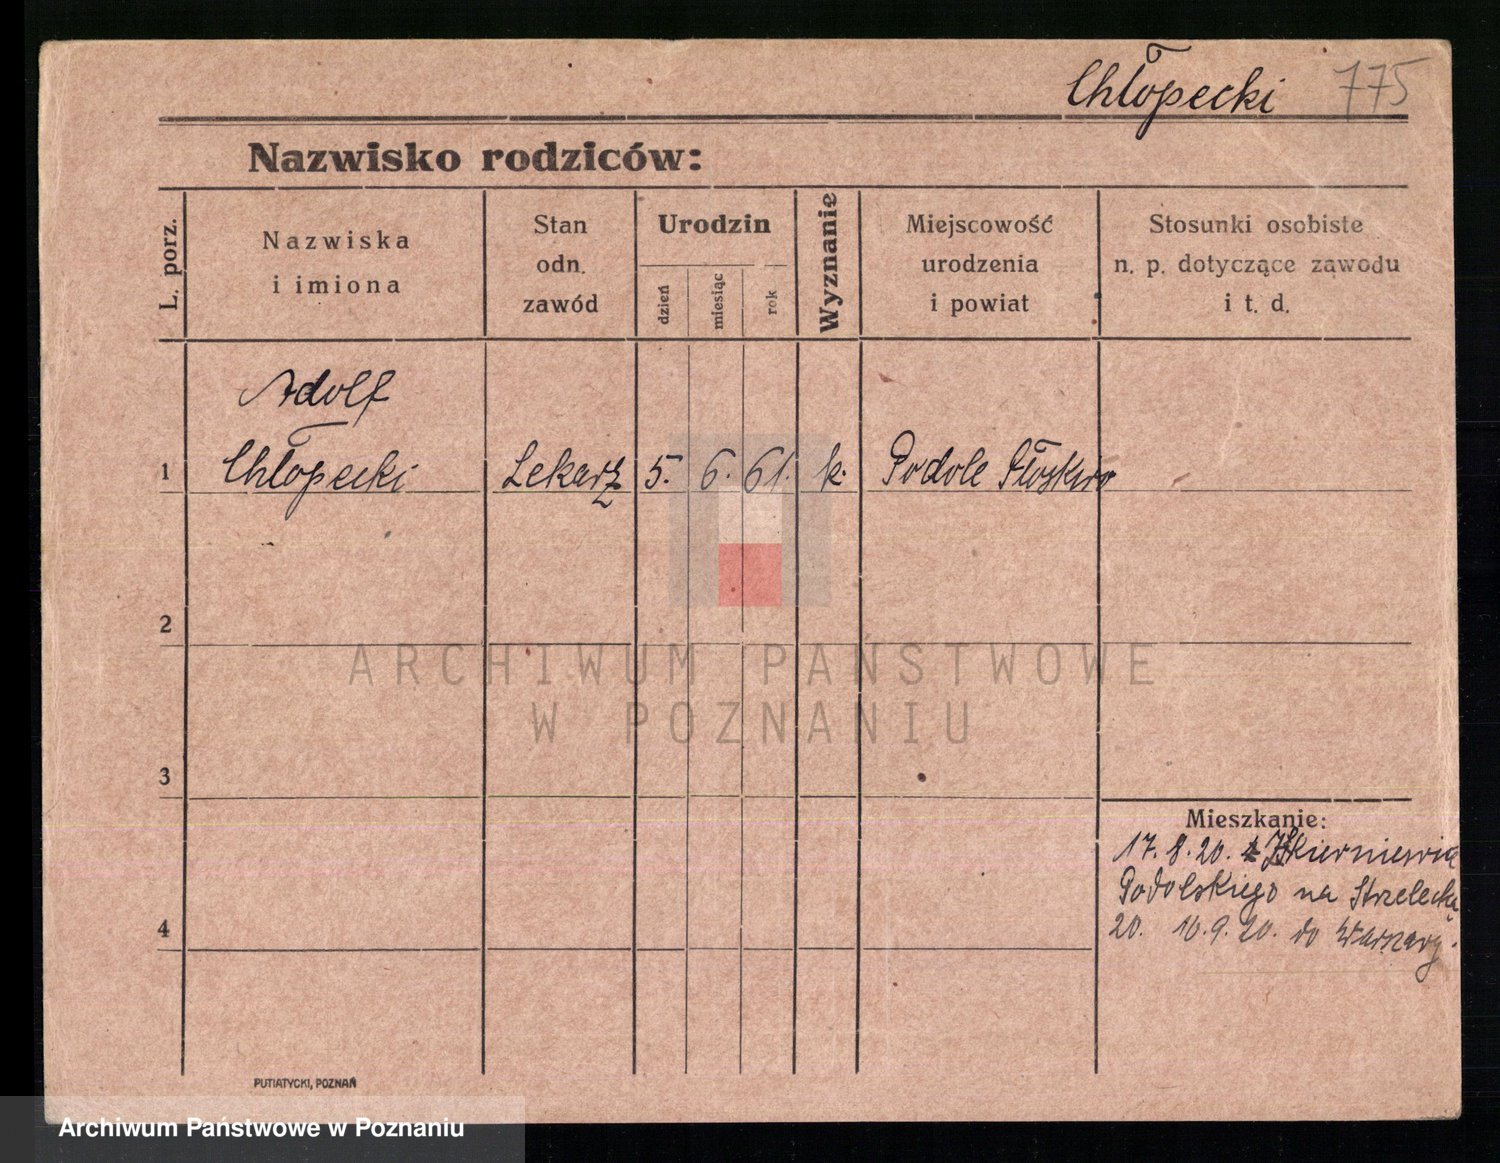 Chłopecki 775
Nazwisko rodziców:
L. porz.
Nazwiska
i imiona
Stan
odn.
zawód
Urodzin
dzień
miesiąc
rok
Wyznanie
Miejscowość
urodzenia
i powiat
Stosunki osobiste
n. p. dotyczące zawodu
i t. d.
Adolf
1 Chłopecki Lekarz 5. 6. 61. k. Podole
2
ARCHIWUM PAŃSTWOWE
W POZNANIU
3
Mieszkanie:
17. 8. 20. Skierniewic
Podolskiego na Strzelecką
4
20. 16. 9. 20. do Warszawy.
PUTIATYCKI, POZNAŃ
Archiwum Państwowe w Poznaniu